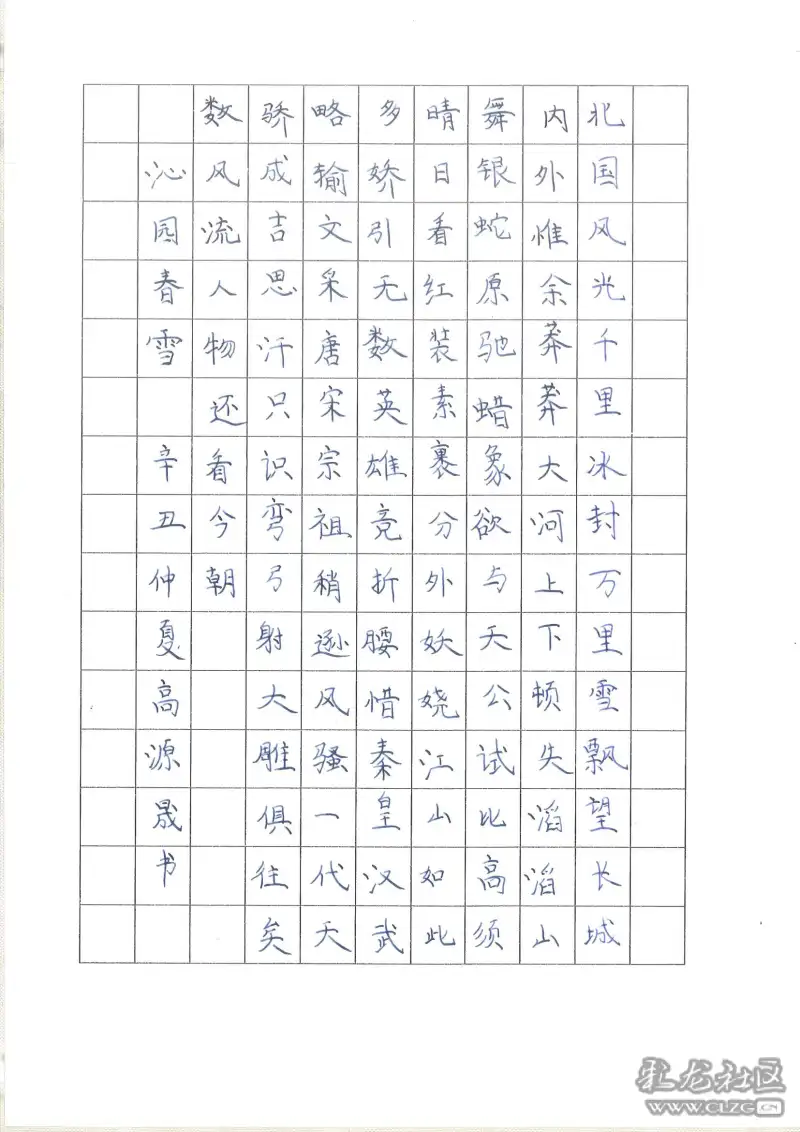 北国风光千里冰封万里雪飘望长城
内外惟余莽莽大河上下顿失滔滔山
舞银蛇原驰蜡象欲与天公试比高须
晴日看红装素裹分外妖娆江山如此
多娇引无数英雄竞折腰惜秦皇汉武
略输文采唐宋宗祖稍逊风骚一代天
骄成吉思汗只识弯弓射大雕俱往矣
数风流人物还看今朝
沁园春雪 辛丑仲夏高源晟书
乳龙社区
www.CLZG.CN